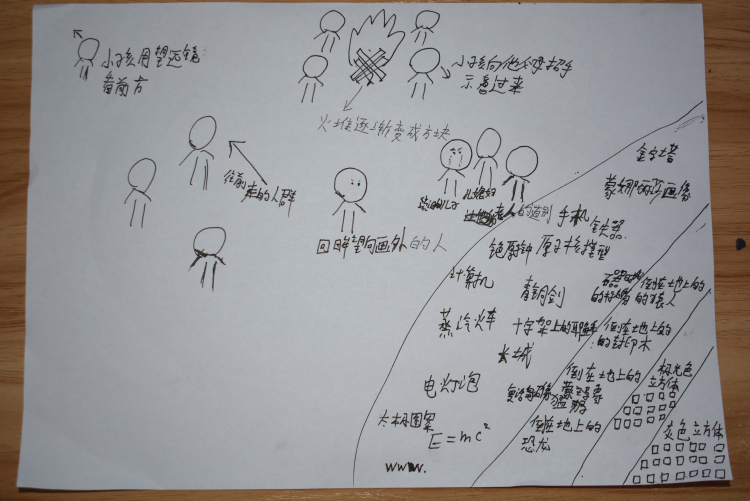 小孩用望远镜
看前方
小孩向他父母招手
示意过来
火堆逐渐变成方块
往前
走的人群
回眸望向画外的人
老人的道别
金字塔
蒙娜丽莎画像
手机
铁器
绝厨钟
原子核模型
计算机
青铜剑
倒在地上的
的猿人
蒸汽火车
十字架上的耶稣
倒在地上的
的封印木
长城
电灯泡
倒在地上的
猛犸
倒在地上的
恐龙
极光色
立方体
灰色立方体
太极图案
E=mc²
www.